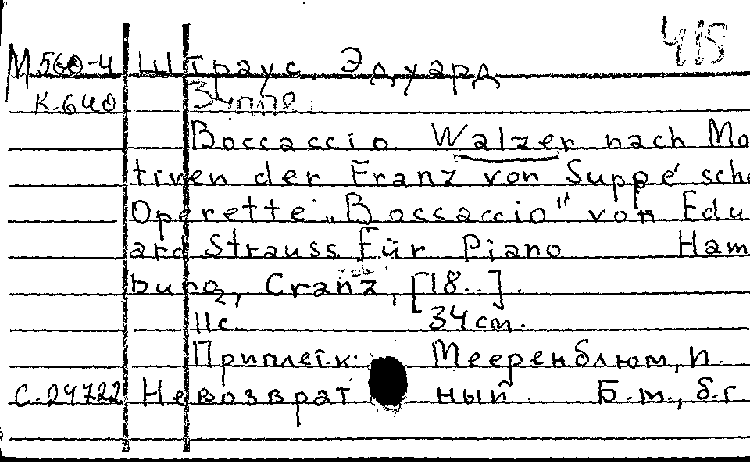 415
М.560-4 Штраус, Эдуард
К.640 Зуппе
Boccaccio. Walzer nach Mo
tiven der Franz von Suppé sche
Operette „Boccaccio" von Edu
ard Strauss Für Piano Ham
burg, Cranz, [18..].
11с. 34 см.
Приплет.к: Мееренблюм, п.
С.24722 Невозврат ный Б.м., б.г